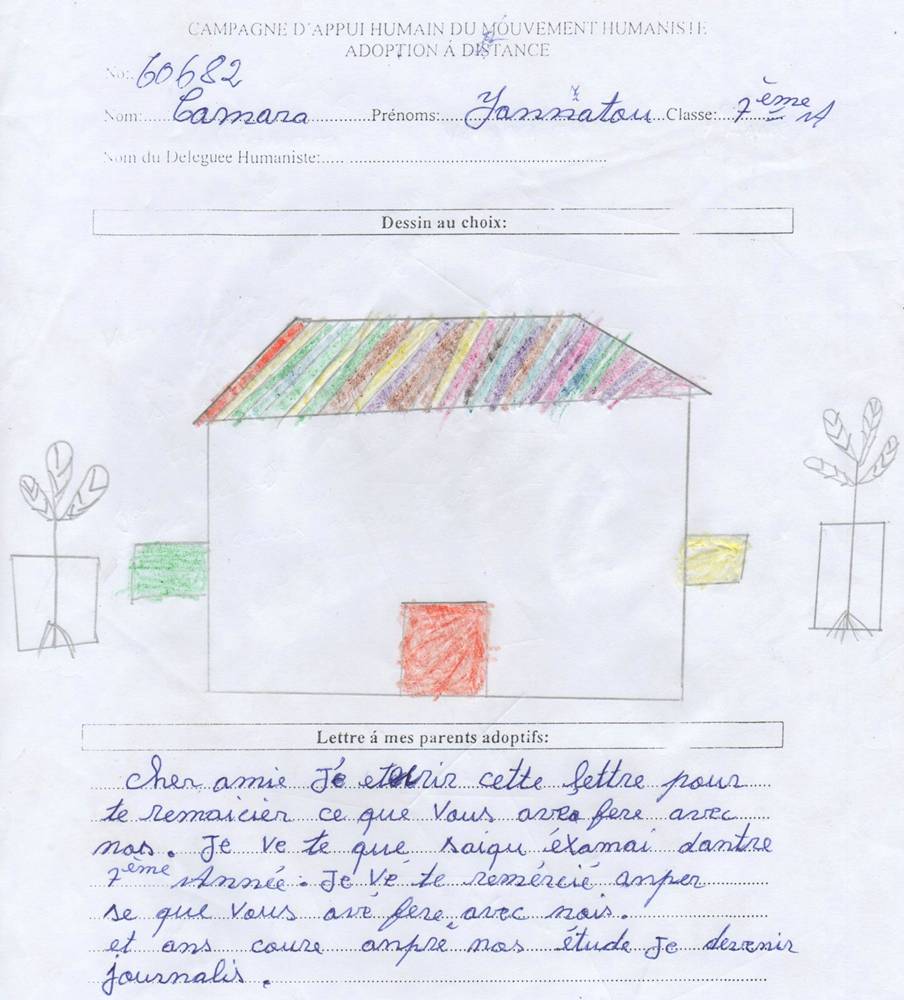 CAMPAGNE D'APPUI HUMAIN DU MOUVEMENT HUMANISTE
ADOPTION Á DISTANCE
No: 60682
Nom: Camara Prénoms: Yannatou Classe: 7ème A
Nom du Deleguee Humaniste:
Dessin au choix:
Lettre á mes parents adoptifs:
cher amie Je cette lettre pour
te remaicier ce que Vous avez fere avec
nos. Je Ve te que saiqu éxamai dantre
7ème Année. Je Vé te remércié anper
se que Vous avé fere avec nois.
et ans coure anpre nos étude Je devenir
journalis.